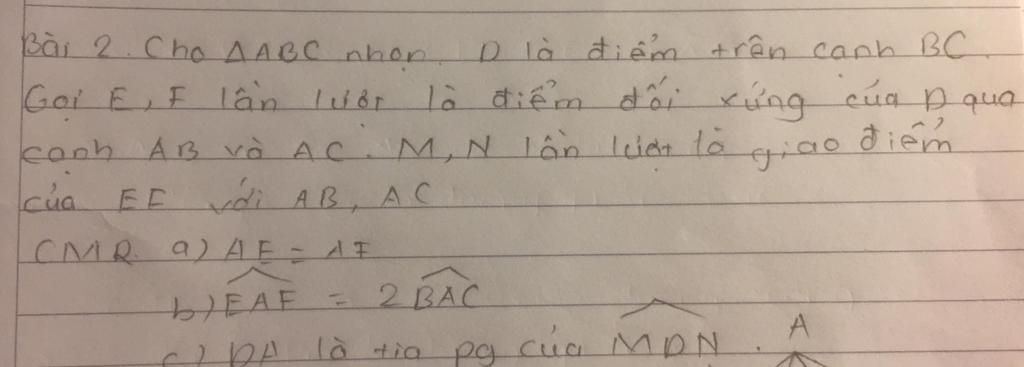 Bài 2. Cho ΔABC nhọn. D là điểm trên cạnh BC.
Gọi E, F lần lượt là điểm đối xứng của D qua
cạnh AB và AC. M, N lần lượt là giao điểm
của EF với AB, AC
CMR a) AE = AF
b) \widehat{EAF} = 2\widehat{BAC}
c) DA là tia pg của \widehat{MDN}.
A